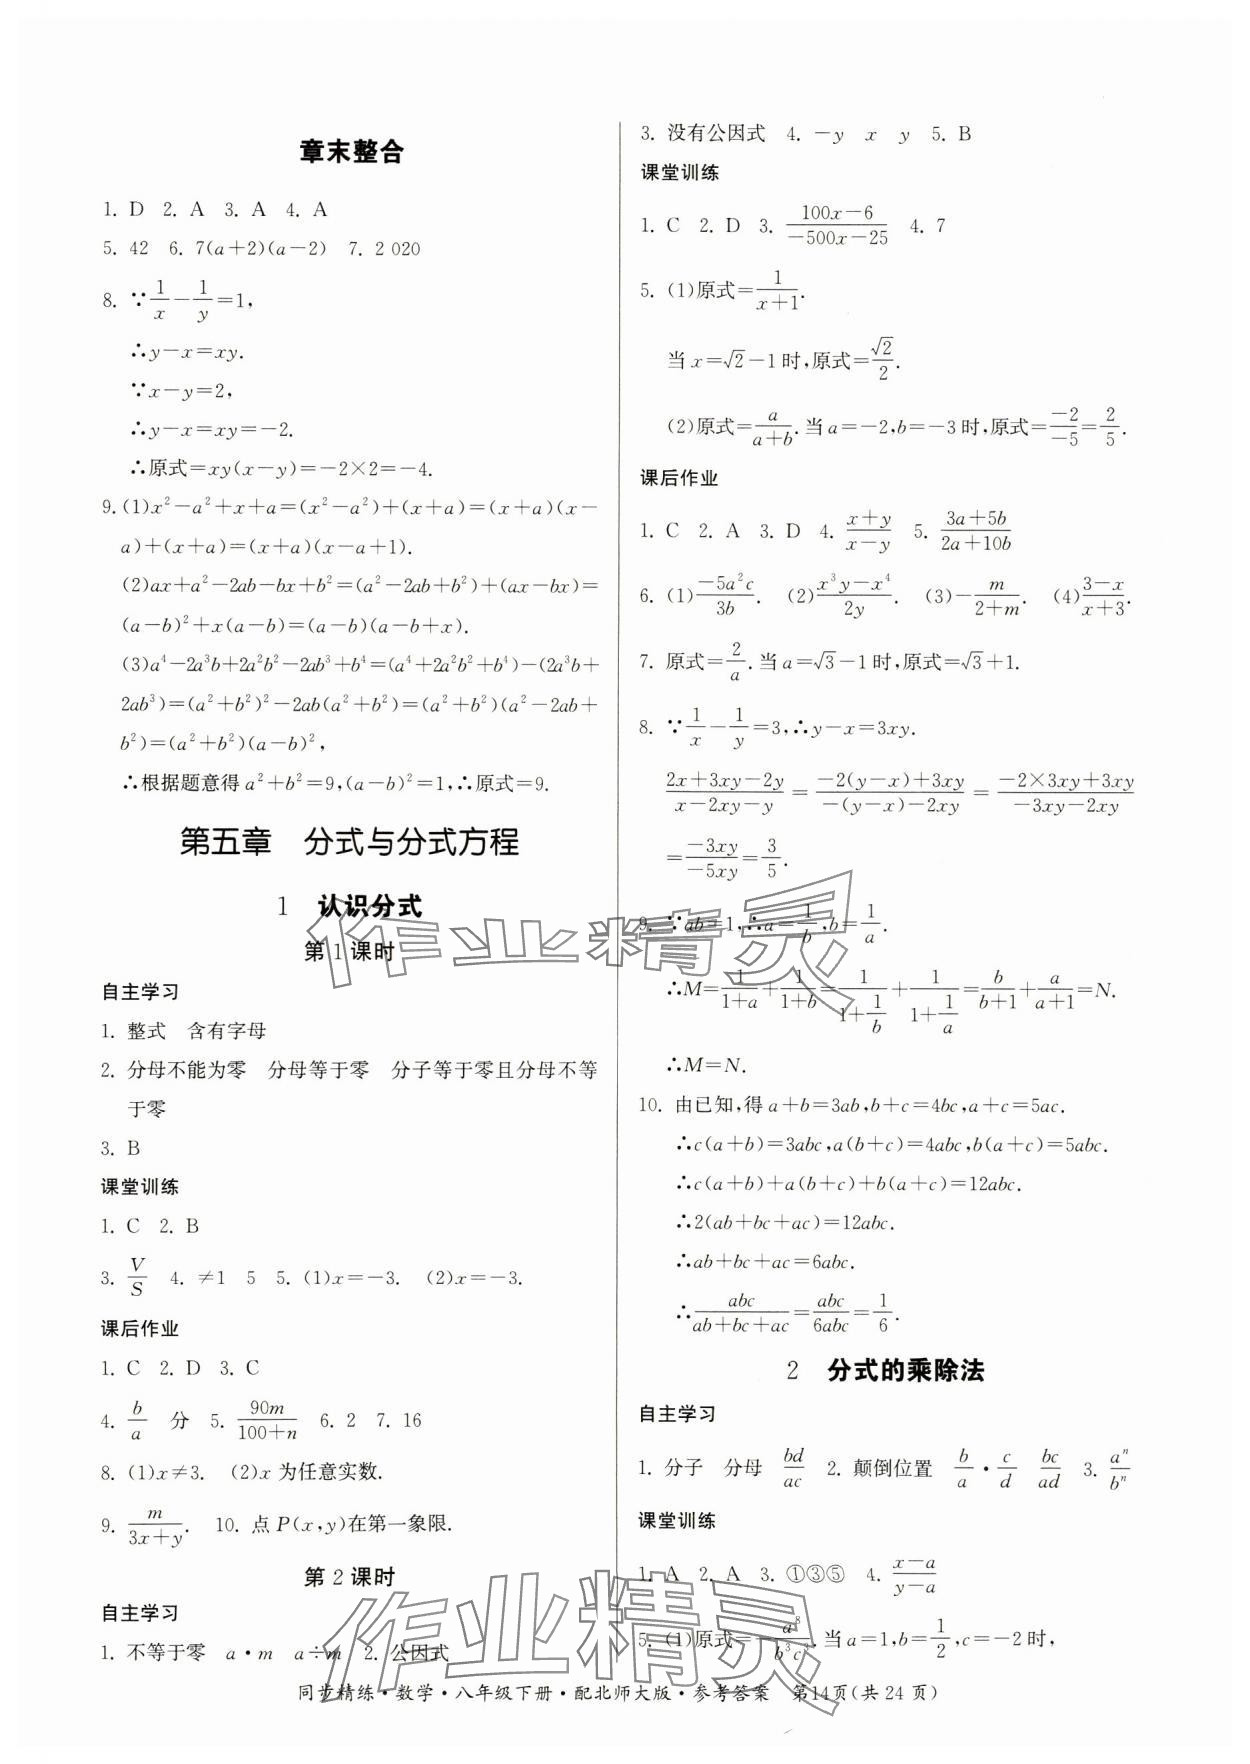 章末整合
1. D 2. A 3. A 4. A
5. 42 6. 7(a+2)(a-2) 7. 2 020
8. ∵1/x-1/y=1,
∴y-x=xy.
∵x-y=2,
∴y-x=xy=-2.
∴原式=xy(x-y)=-2×2=-4.
9. (1)x²-a²+x+a=(x²-a²)+(x+a)=(x+a)(x-
a)+(x+a)=(x+a)(x-a+1).
(2)ax+a²-2ab-bx+b²=(a²-2ab+b²)+(ax-bx)=
(a-b)²+x(a-b)=(a-b)(a-b+x).
(3)a⁴-2a³b+2a²b²-2ab³+b⁴=(a⁴+2a²b²+b⁴)-(2a³b+
2ab³)=(a²+b²)²-2ab(a²+b²)=(a²+b²)(a²-2ab+
b²)=(a²+b²)(a-b)²,
∴根据题意得a²+b²=9,(a-b)²=1,∴原式=9.
第五章 分式与分式方程
1 认识分式
第1课时
自主学习
1. 整式 含有字母
2. 分母不能为零 分母等于零 分子等于零且分母不等
于零
3. B
课堂训练
1. C 2. B
3. V/S 4. ≠1 5 5. (1)x=-3. (2)x=-3.
课后作业
1. C 2. D 3. C
4. b/a 分 5. 90m/(100+n) 6. 2 7. 16
8. (1)x≠3. (2)x为任意实数.
9. m/(3x+y). 10. 点P(x,y)在第一象限.
第2课时
自主学习
1. 不等于零 a·m a÷m 2. 公因式
3. 没有公因式 4. -y x y 5. B
课堂训练
1. C 2. D 3. (100x-6)/(-500x-25) 4. 7
5. (1)原式=1/(x+1).
当x=√2-1时,原式=√2/2.
(2)原式=a/(a+b).当a=-2,b=-3时,原式=-2/-5=2/5.
课后作业
1. C 2. A 3. D 4. (x+y)/(x-y) 5. (3a+5b)/(2a+10b)
6. (1)-5a²c/3b. (2)(x³y-x⁴)/2y. (3)-m/(2+m). (4)(3-x)/(x+3).
7. 原式=2/a.当a=√3-1时,原式=√3+1.
8. ∵1/x-1/y=3,∴y-x=3xy.
(2x+3xy-2y)/(x-2xy-y)=(-2(y-x)+3xy)/(-(y-x)-2xy)=(-2×3xy+3xy)/(-3xy-2xy)
=-3xy/-5xy=3/5.
9. ∵ab=1,∴a=1/b,b=1/a.
∴M=1/(1+a)+1/(1+b)=1/(1+1/b)+1/(1+1/a)=b/(b+1)+a/(a+1)=N.
∴M=N.
10. 由已知,得a+b=3ab,b+c=4bc,a+c=5ac.
∴c(a+b)=3abc,a(b+c)=4abc,b(a+c)=5abc.
∴c(a+b)+a(b+c)+b(a+c)=12abc.
∴2(ab+bc+ac)=12abc.
∴ab+bc+ac=6abc.
∴abc/(ab+bc+ac)=abc/6abc=1/6.
2 分式的乘除法
自主学习
1. 分子 分母 bd/ac 2. 颠倒位置 b/a·c/d bc/ad 3. aⁿ/bⁿ
课堂训练
1. A 2. A 3. ①③⑤ 4. (x-a)/(y-a)
5. (1)原式=-a⁸/b³c³.当a=1,b=1/2,c=-2时,
同步精练·数学·八年级下册·配北师大版·参考答案 第14页(共24页)
作业精灵
作业精灵